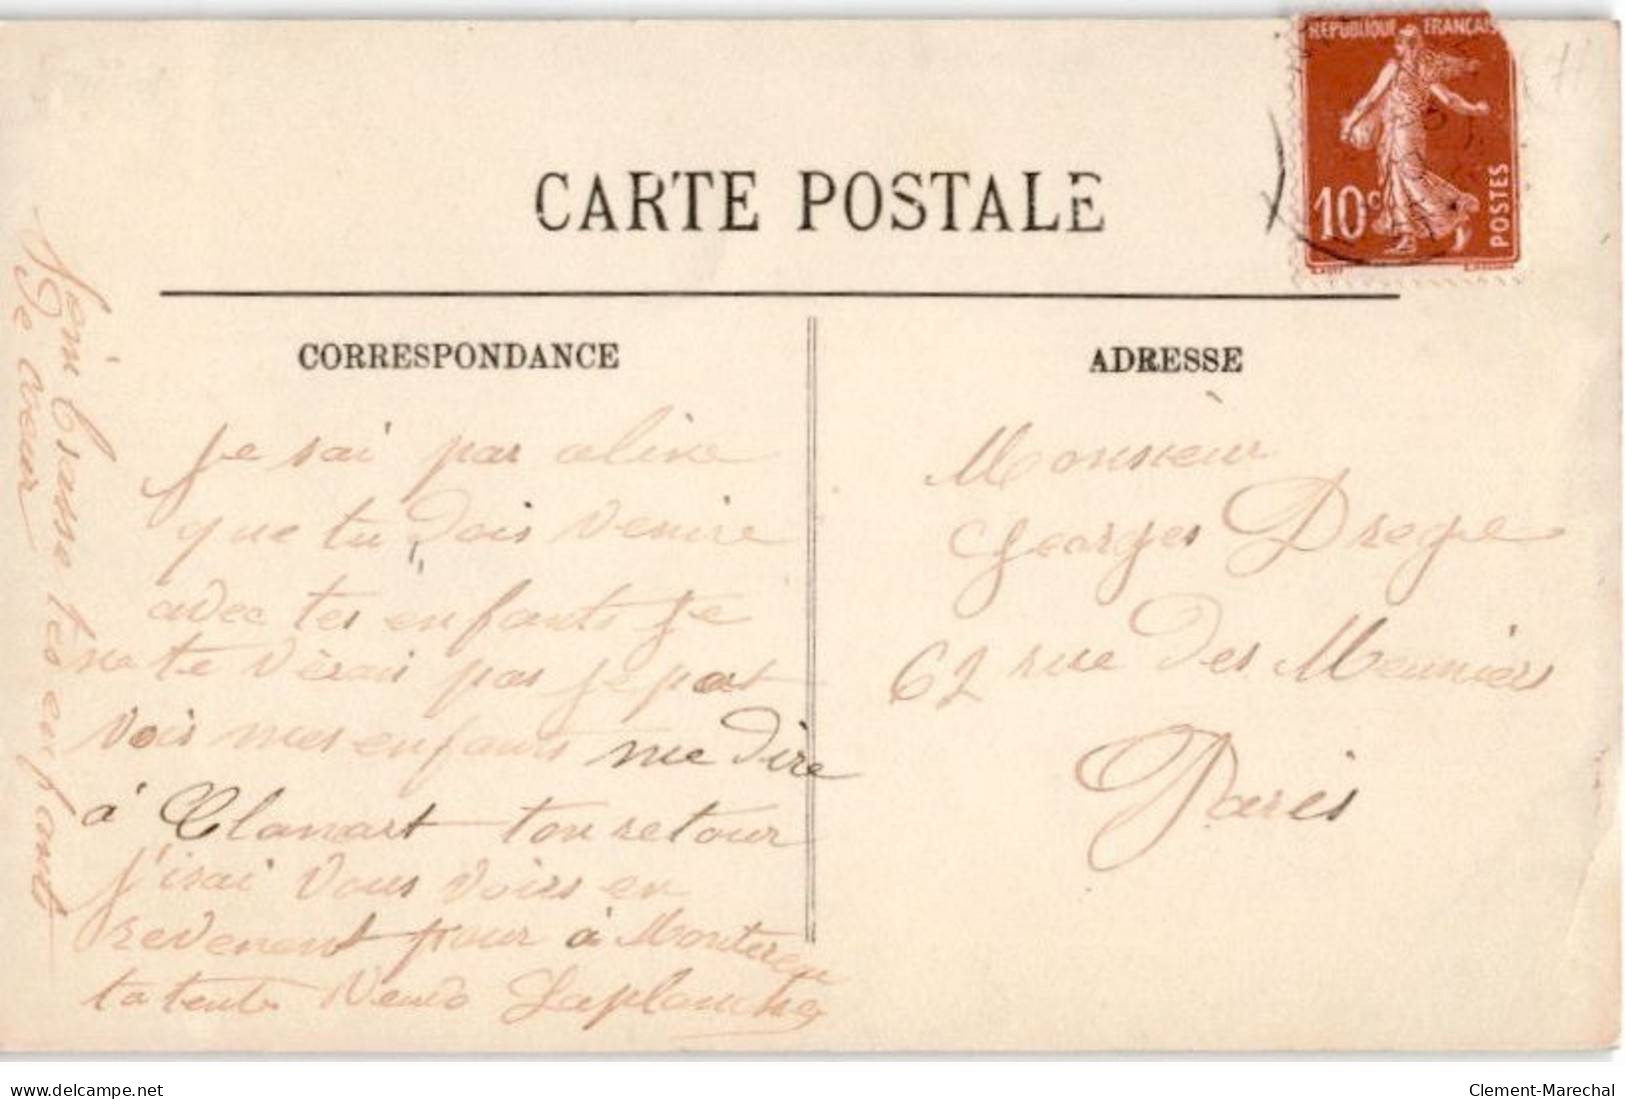 REPUBLIQUE FRANCAISE
10c
POSTES
CARTE POSTALE
CORRESPONDANCE
ADRESSE
Je sai par aline
que tu dois venire
avec tes enfants Je
ne te vèrai pas Je part
vois mes enfants me dire
à Clamart ton retour
J'irai vous voirs en
revenent pour à Montereau
ta tente Veuve Laplanche
J'enbrasse tes enfant
de cœur
Monsieur
Georges Droge
62 rue des Meuniers
Paris
delcampe.net
Clement-Marechal